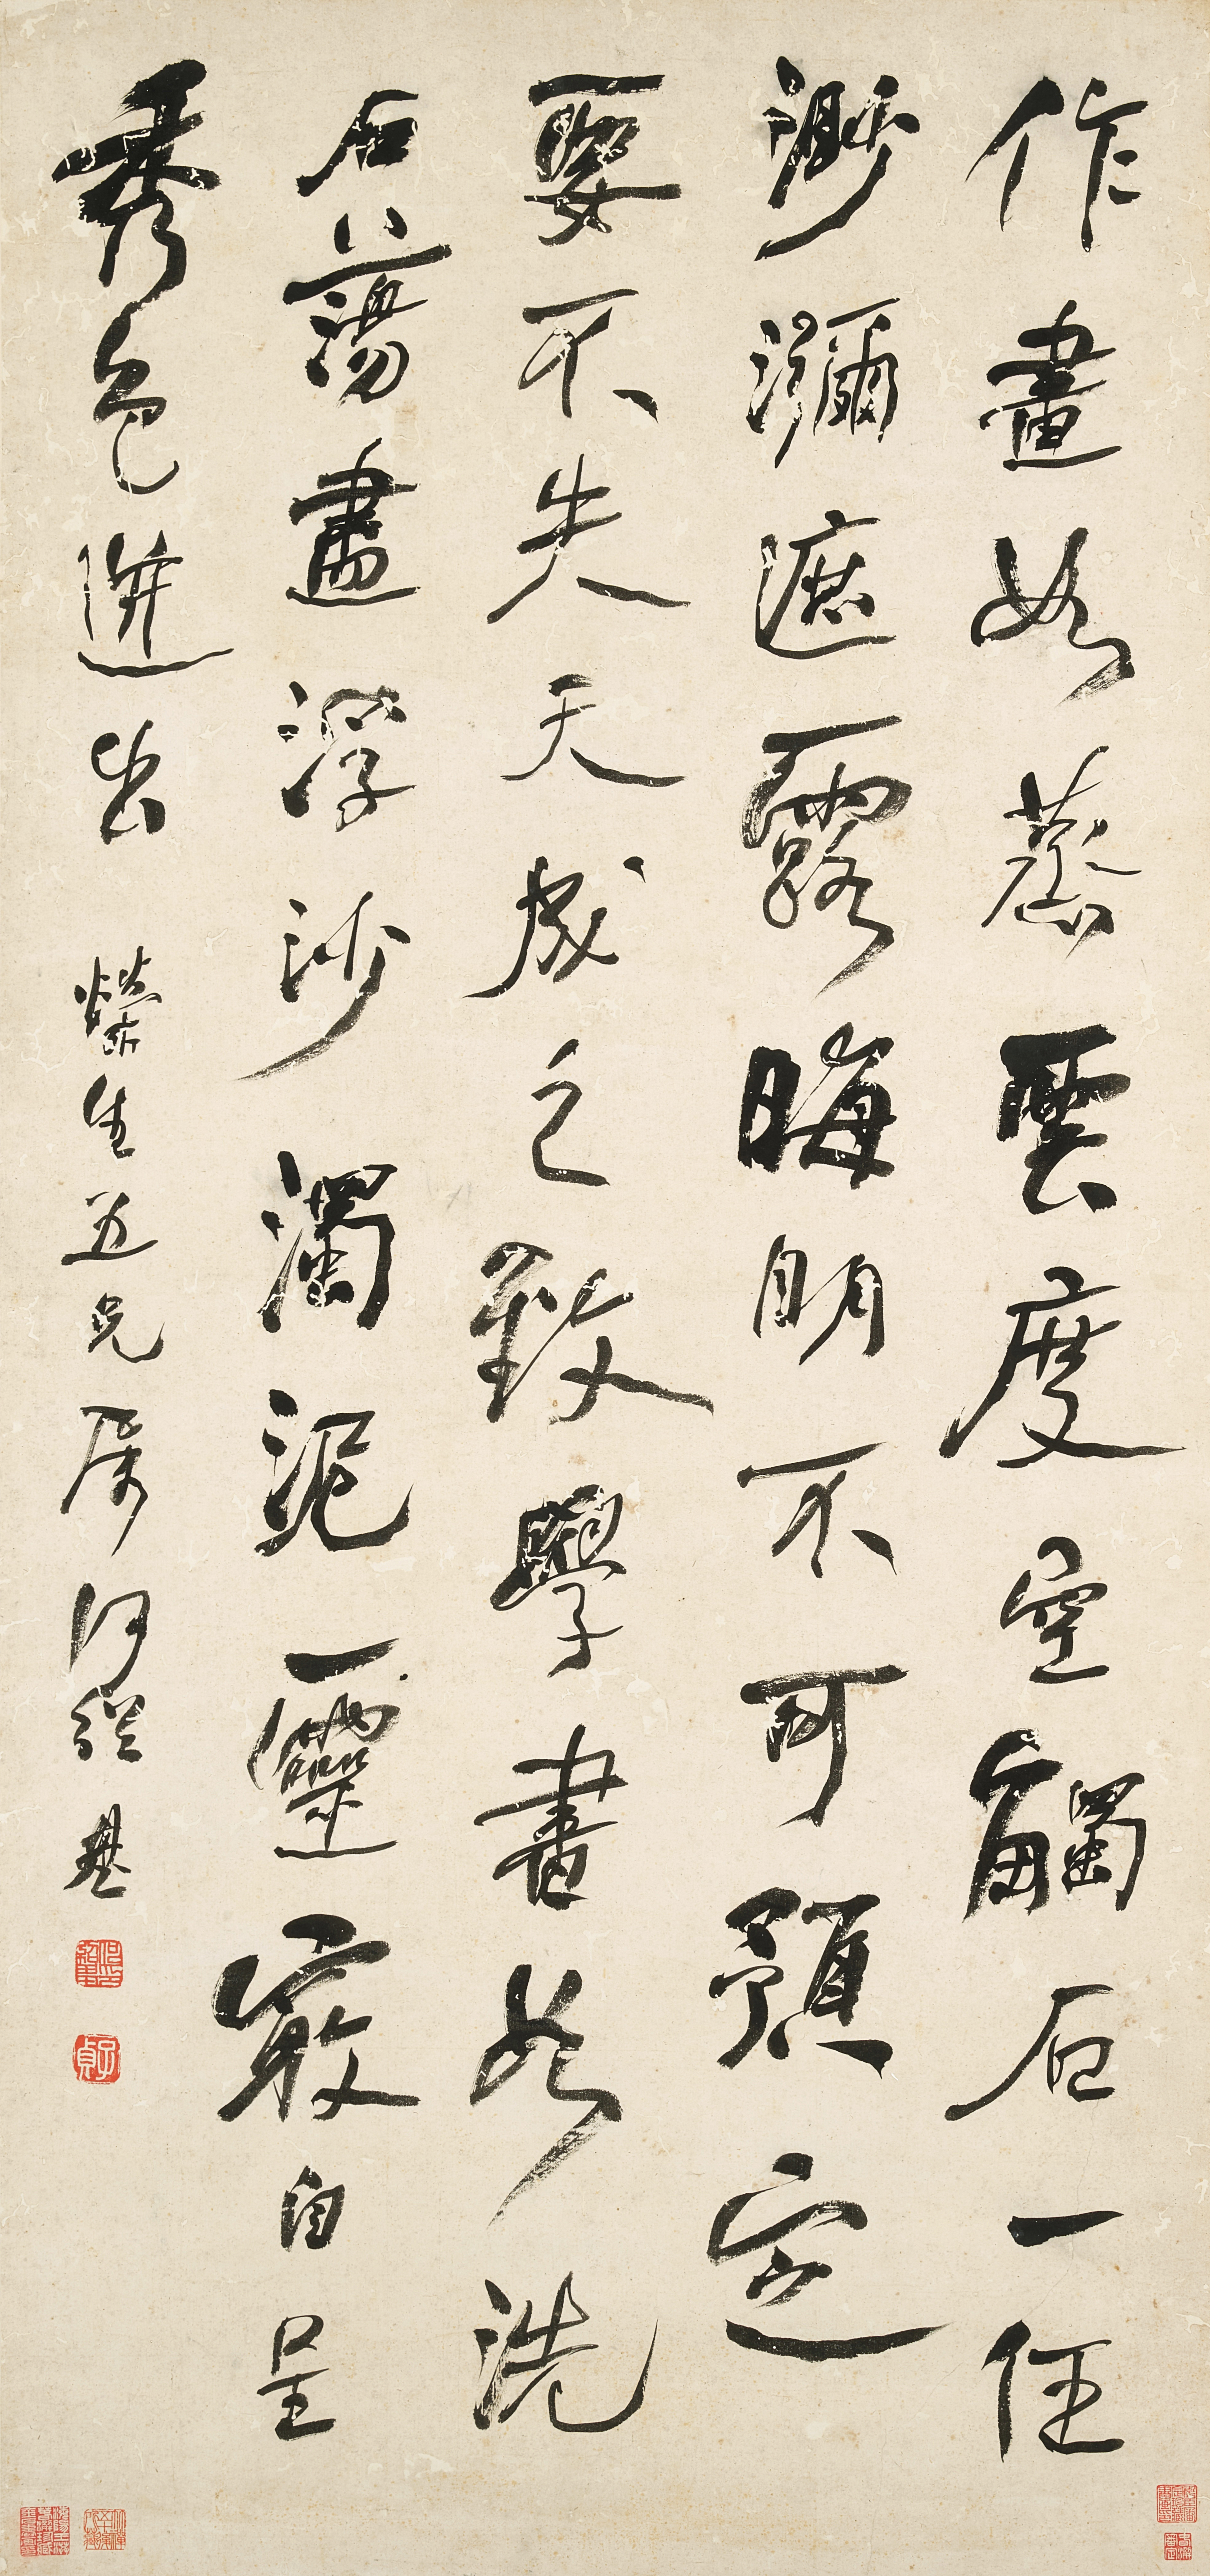 作畫如蒸雲度空觸石一任
渺瀰遮露晦明不可預定
要不失天成之致學書如洗
石蕩盡浮沙濁泥靈竅自呈
秀色迸出 生五兄屬 何紹基
子貞